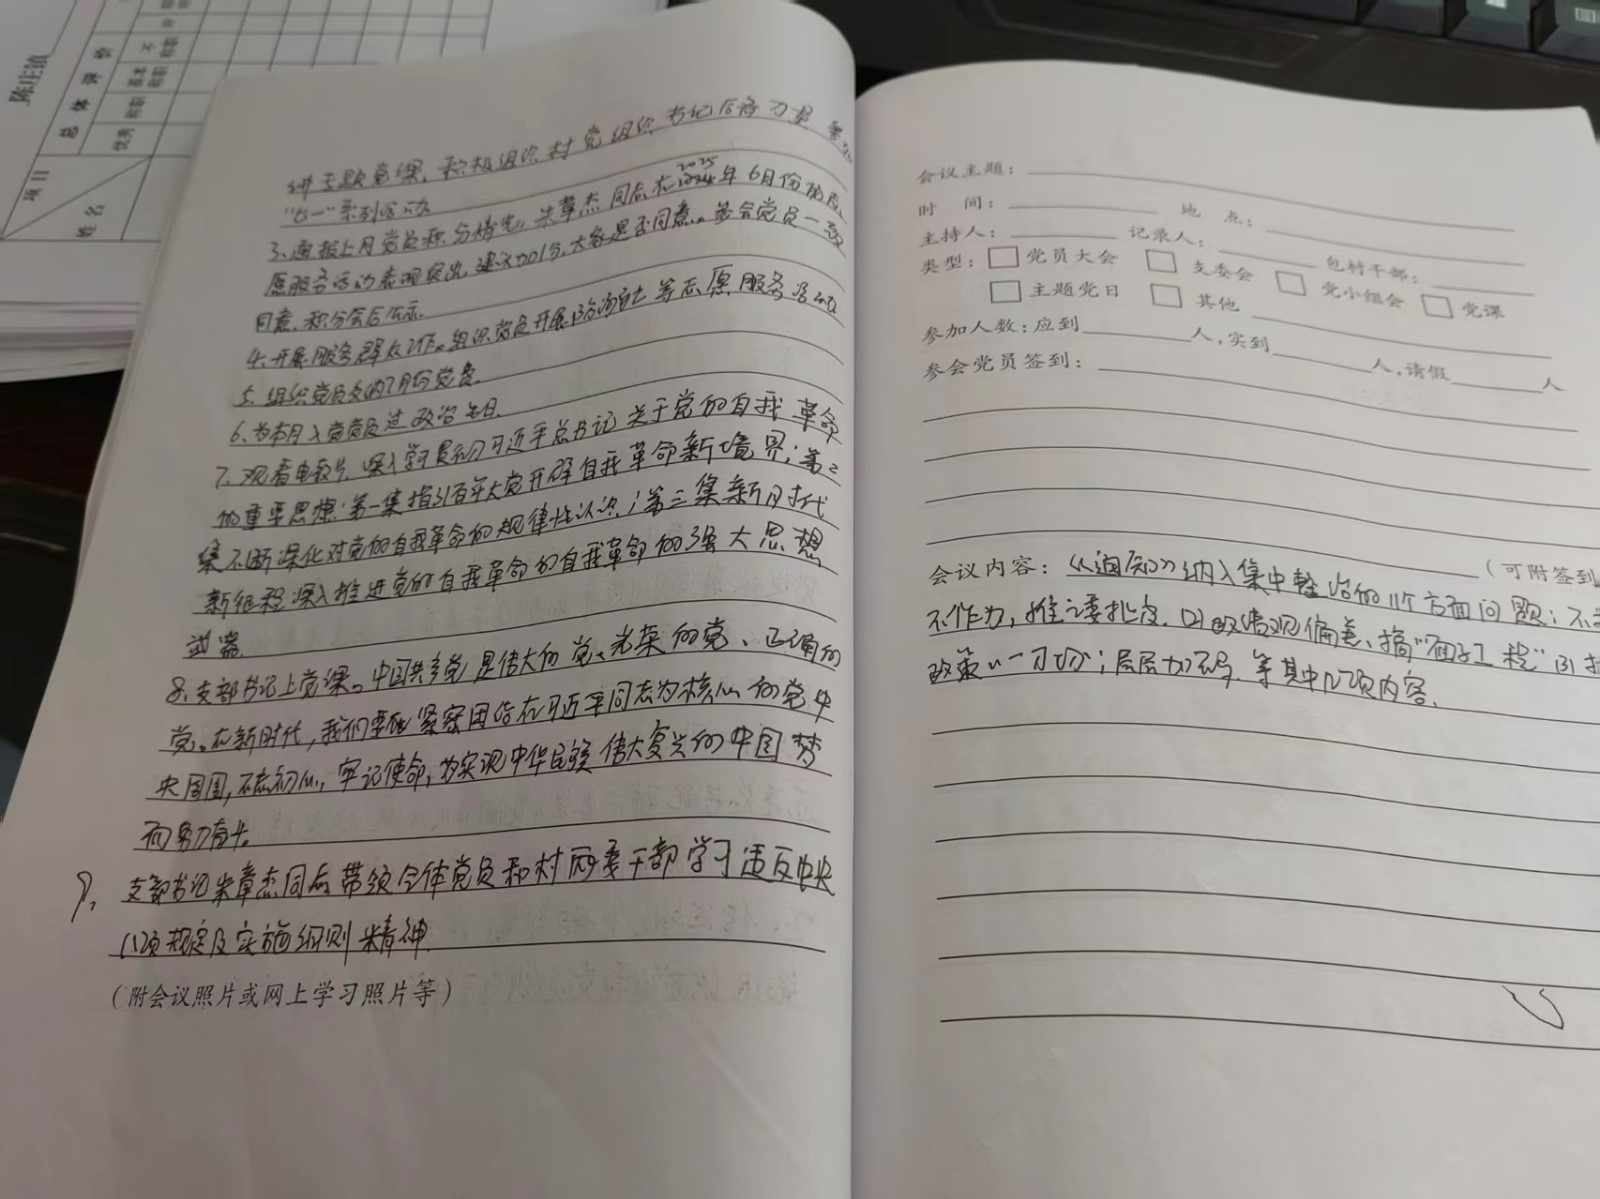 陈庄镇
项目
总体评价
优秀
称职
基本称职
不称职
姓名
讲主题党课,积极组织村党组织书记
"七一"系列活动
3、通报上月党员积分情况,朱章杰同志在2025年6月份
愿服务活动表现突出,建议加15,大家是否同意。参会党员一致
同意,积分会后公示。
4、开展服务群众工作。组织党员开展防溺亡等志愿服务活动
5、组织党员交纳7月份党费
6、为本月入党党员过政治生日
7、观看电教片,深入学习贯彻习近平总书记关于党的自我革命
的重要思想:第一集指引百年大党开辟自我革命新境界;第二
集不断深化对党的自我革命的规律性认识;第三集新时代
新征程深入推进党的自我革命的自我革命的强大思想
武器
8、支部书记上党课。中国共产党是伟大的党、光荣的党、正确的
党。在新时代,我们要紧密团结在习近平同志为核心的党中
央周围,不忘初心,牢记使命,为实现中华民族伟大复兴的中国梦
而努力奋斗。
9、支部书记朱章杰同志带领全体党员和村两委干部学习违反中央
八项规定及实施细则精神
(附会议照片或网上学习照片等)
会议主题:
时 间: 地 点:
主持人: 记录人: 包村干部:
类型: 党员大会 支委会 党小组会 党课
主题党日 其他
参加人数:应到 人,实到 人,请假 人
参会党员签到:
(可附签到
会议内容:《通知》纳入集中整治的11个方面问题:不
不作为,推诿扯皮.(2)政绩观偏差、搞"面子工程"(3)
政策"一刀切";层层加码.等其中几项内容.